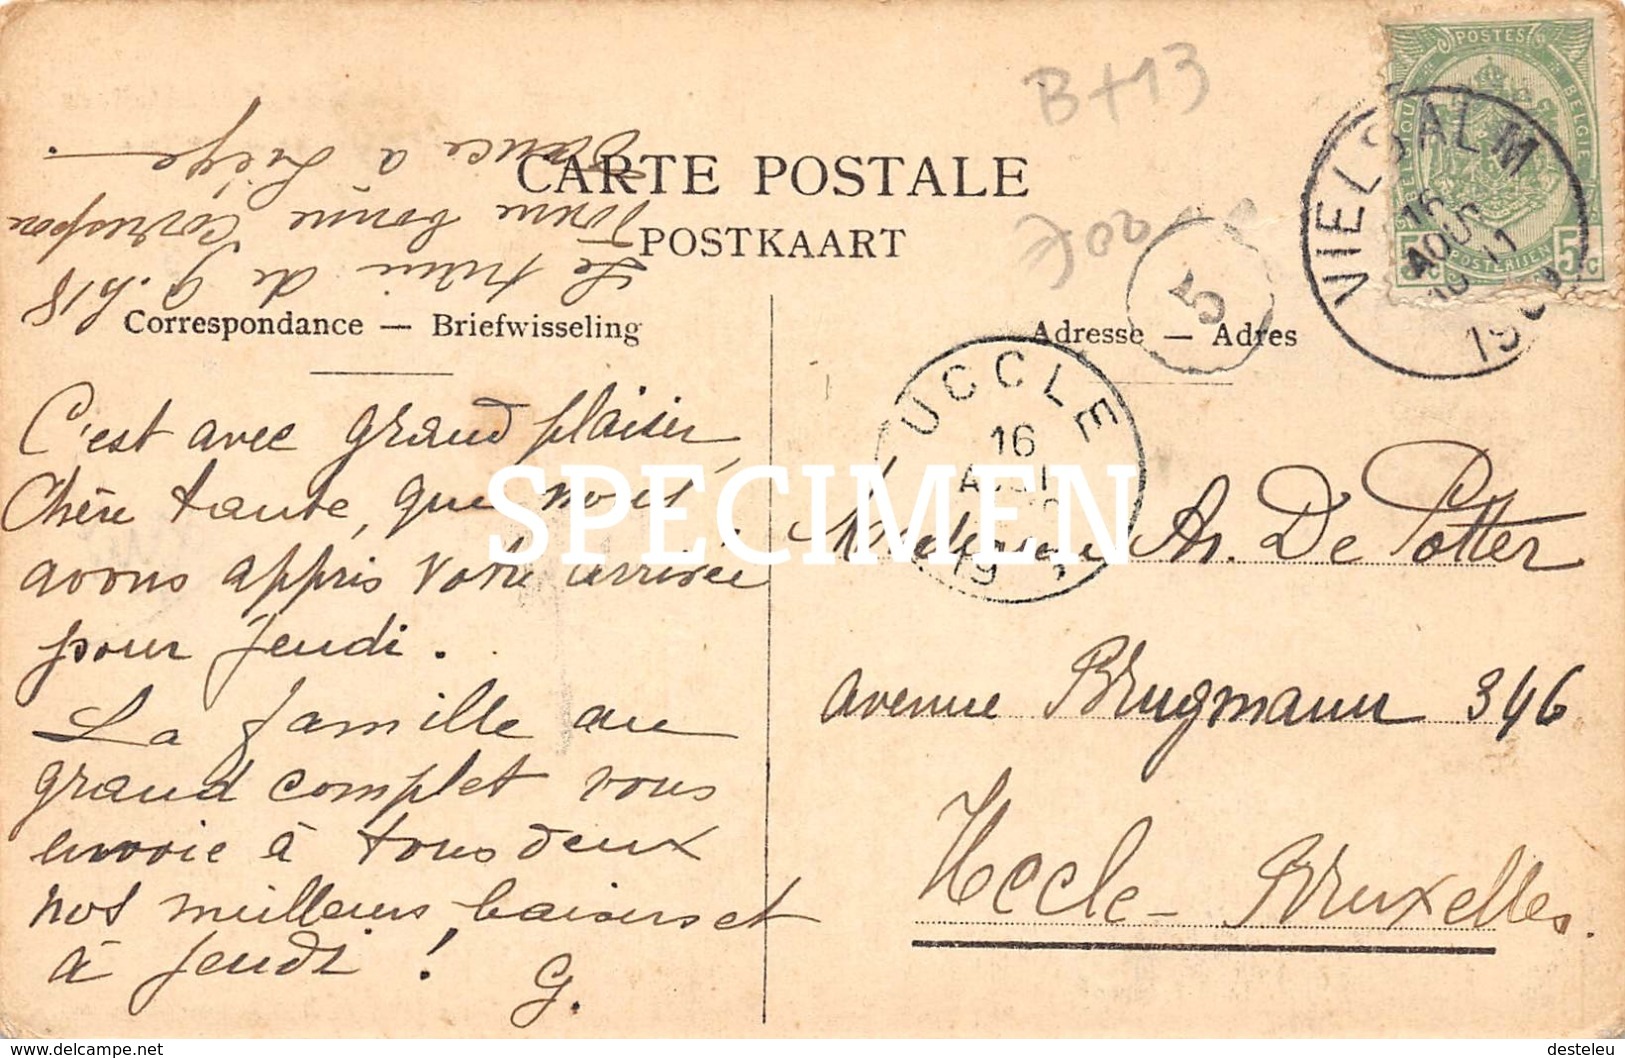 B+13
CARTE POSTALE
POSTKAART
Correspondance — Briefwisseling
Adresse — Adres
Le train de 9.h18
donne bonne Correspon
dance à Liège.
C'est avec grand plaisir,
Chère tante, que nous
avons appris votre arrivée
pour jeudi.
La famille au
grand complet vous
envoie à tous deux
nos meilleurs baisers et
à jeudi !
G.
De Potter
avenue Brugmann 346
Uccle - Bruxelles.
POSTES
BELGIQUE BELGIE
5c POSTERIJEN 5c
VIELSALM
16
AOUT
UCCLE
16
19
5
SPECIMEN
delcampe.net
desteleu